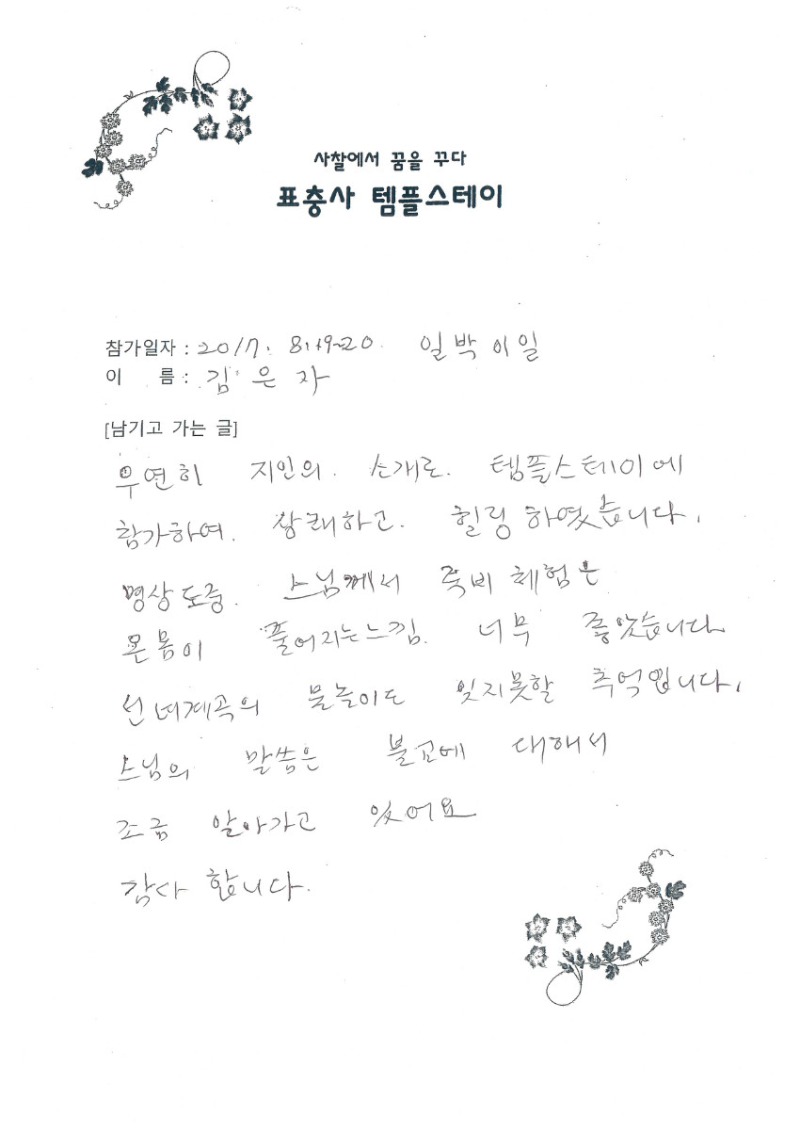 사찰에서 꿈을 꾸다
표충사 템플스테이
참가일자 : 2017. 8.19~20. 일박이일
이 름 : 김은자
[남기고 가는 글]
우연히 지인의. 소개로. 템플스테이에
참가하여. 하고. 힐링 하였습니다.
명상도중. 스님께서 죽비 체험은
온몸이 풀어지는느낌. 너무 좋았습니다
선녀계곡의 물놀이도 잊지못할 추억입니다.
스님의 말씀은 불교에 대해서
조금 알아가고 있어요
감사 합니다.